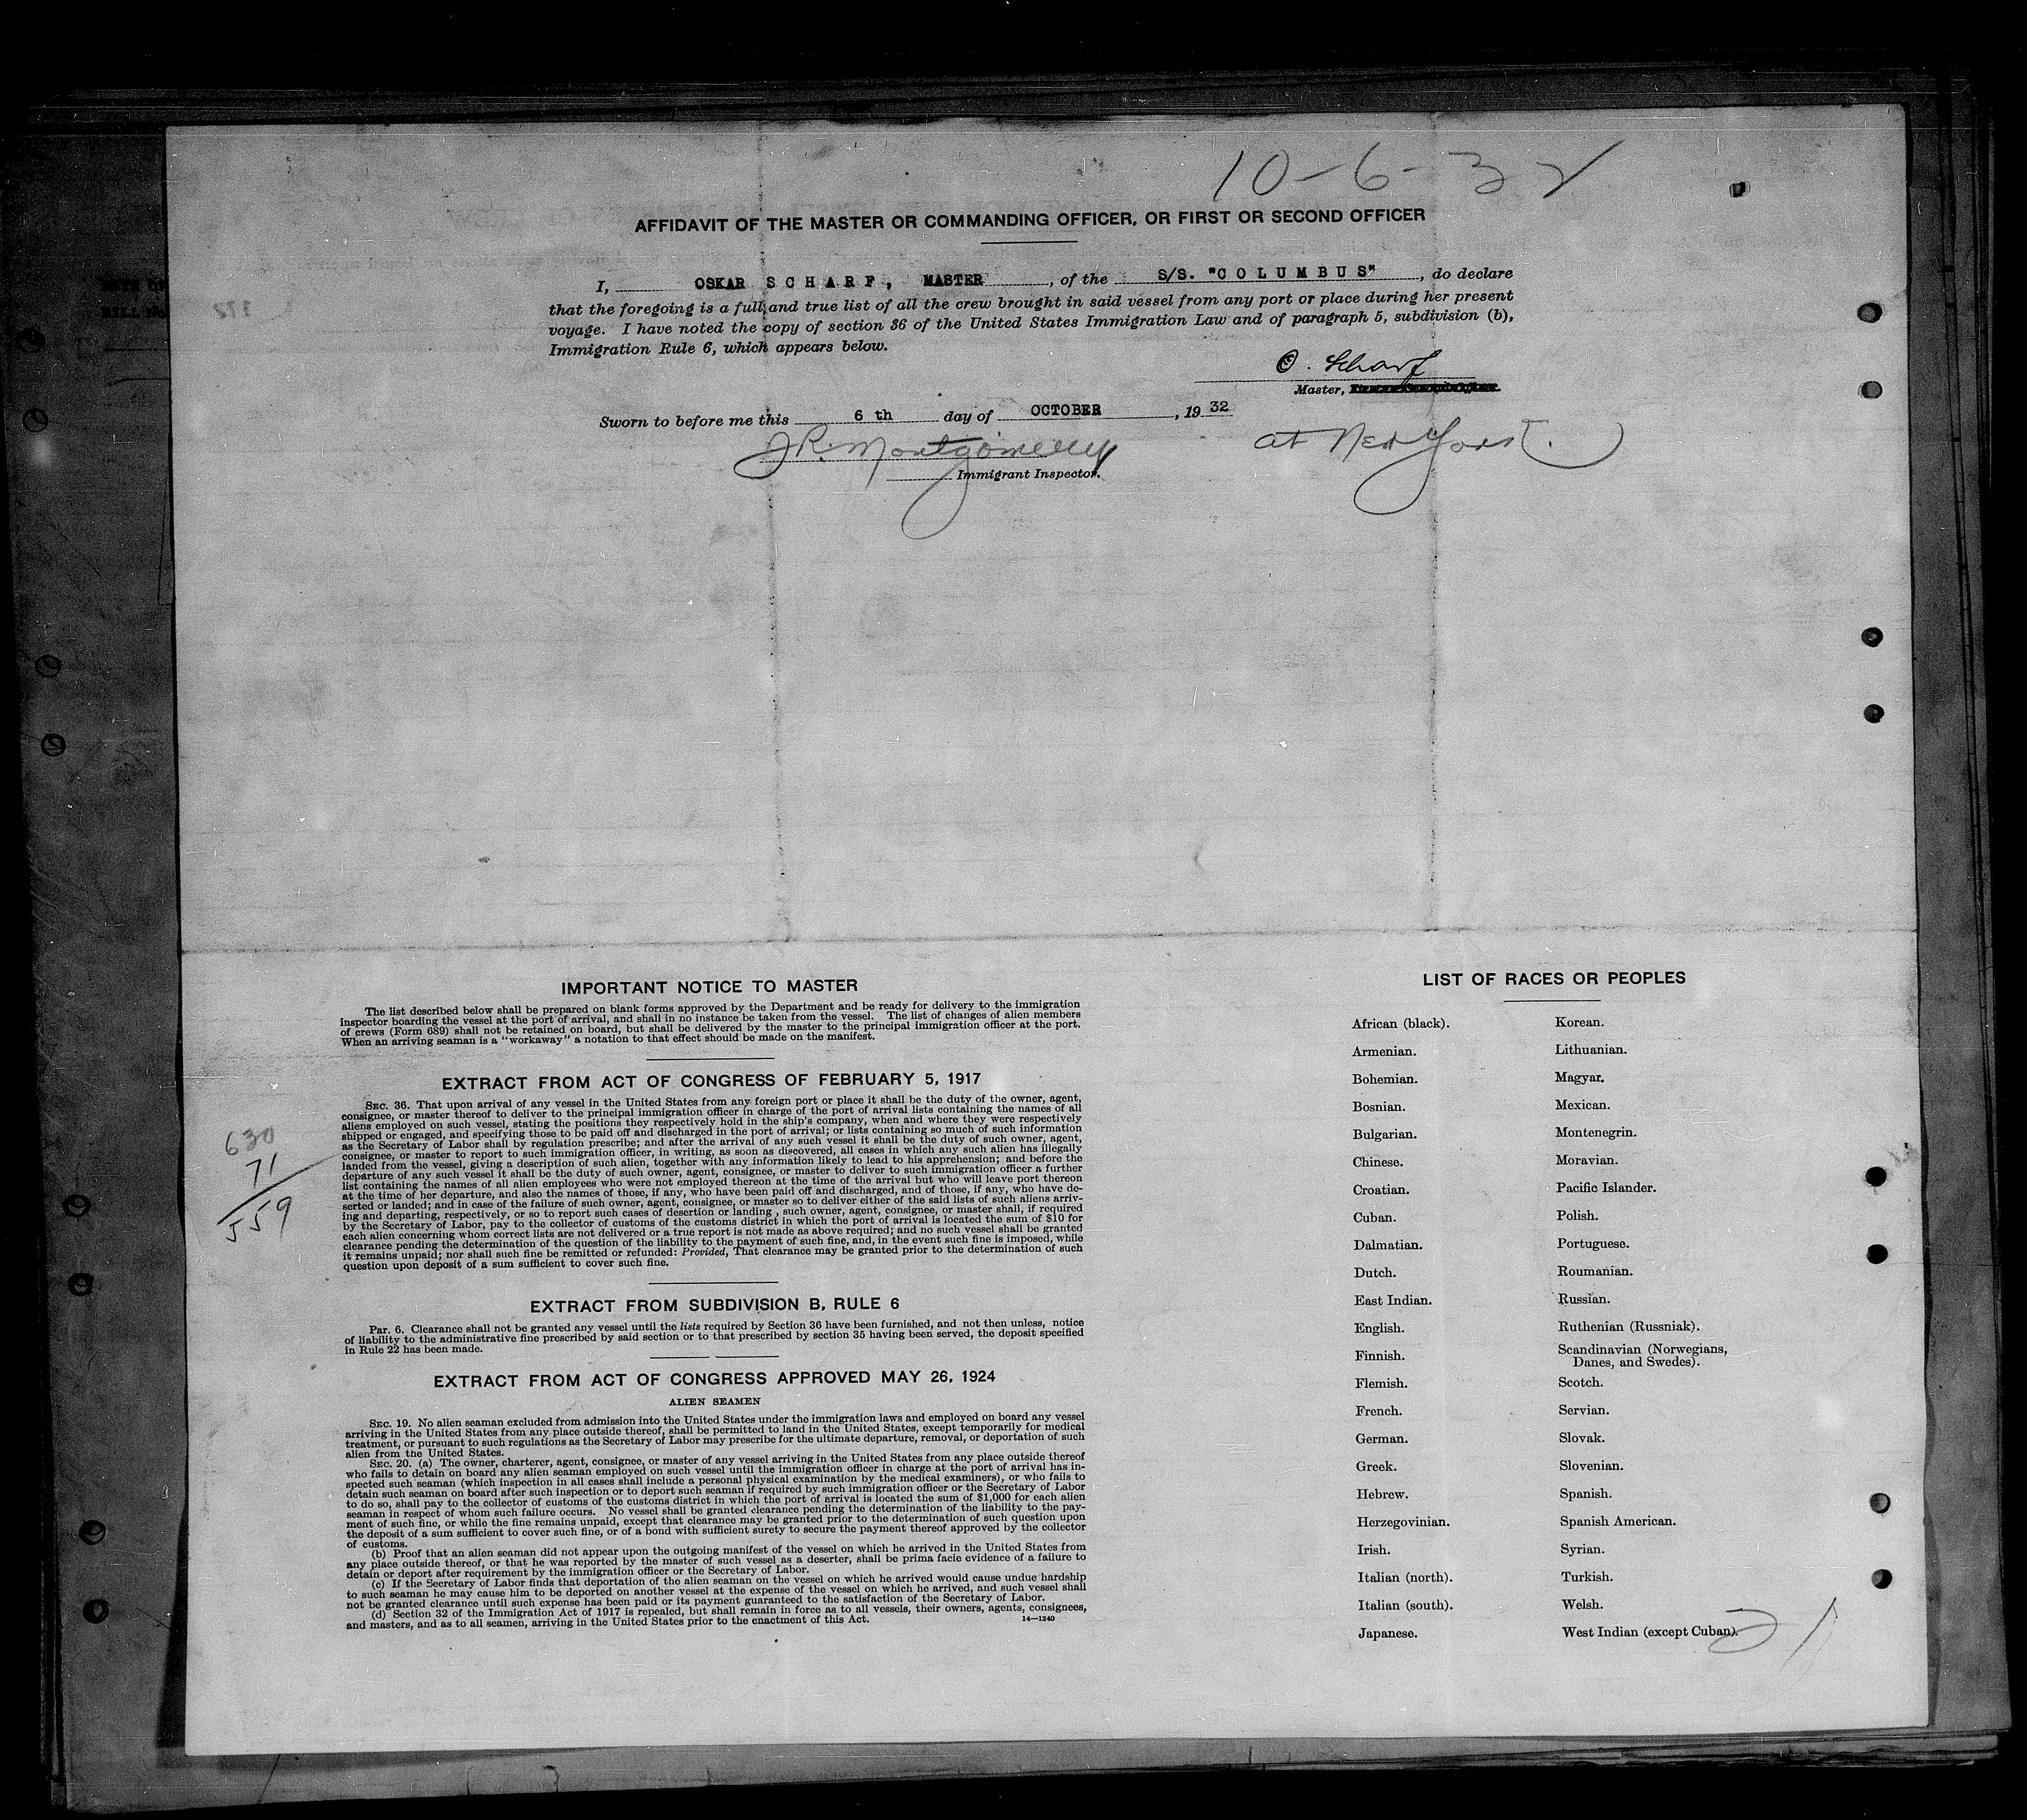 10-6-32
AFFIDAVIT OF THE MASTER OR COMMANDING OFFICER, OR FIRST OR SECOND OFFICER
I, OSKAR S C H A R F , MASTER , of the S/S. "C O L U M B U S" , do declare
that the foregoing is a full and true list of all the crew brought in said vessel from any port or place during her present
voyage. I have noted the copy of section 36 of the United States Immigration Law and of paragraph 5, subdivision (b),
Immigration Rule 6, which appears below.
O. Scharf
Master,
Sworn to before me this 6 th day of OCTOBER , 19 32
J.R. Montgomery at New York.
Immigrant Inspector.
IMPORTANT NOTICE TO MASTER
The list described below shall be prepared on blank forms approved by the Department and be ready for delivery to the immigration
inspector boarding the vessel at the port of arrival, and shall in no instance be taken from the vessel. The list of changes of alien members
of crews (Form 689) shall not be retained on board, but shall be delivered by the master to the principal immigration officer at the port.
When an arriving seaman is a "workaway" a notation to that effect should be made on the manifest.
EXTRACT FROM ACT OF CONGRESS OF FEBRUARY 5, 1917
SEC. 36. That upon arrival of any vessel in the United States from any foreign port or place it shall be the duty of the owner, agent,
consignee, or master thereof to deliver to the principal immigration officer in charge of the port of arrival lists containing the names of all
aliens employed on such vessel, stating the positions they respectively hold in the ship's company, when and where they were respectively
shipped or engaged, and specifying those to be paid off and discharged in the port of arrival; or lists containing so much of such information
as the Secretary of Labor shall by regulation prescribe; and after the arrival of any such vessel it shall be the duty of such owner, agent,
consignee, or master to report to such immigration officer, in writing, as soon as discovered, all cases in which any such alien has illegally
landed from the vessel, giving a description of such alien, together with any information likely to lead to his apprehension; and before the
departure of any such vessel it shall be the duty of such owner, agent, consignee, or master to deliver to such immigration officer a further
list containing the names of all alien employees who were not employed thereon at the time of the arrival but who will leave port thereon
at the time of her departure, and also the names of those, if any, who have been paid off and discharged, and of those, if any, who have de-
serted or landed; and in case of the failure of such owner, agent, consignee, or master so to deliver either of the said lists of such aliens arriv-
ing and departing, respectively, or so to report such cases of desertion or landing , such owner, agent, consignee, or master shall, if required
by the Secretary of Labor, pay to the collector of customs of the customs district in which the port of arrival is located the sum of $10 for
each alien concerning whom correct lists are not delivered or a true report is not made as above required; and no such vessel shall be granted
clearance pending the determination of the question of the liability to the payment of such fine, and, in the event such fine is imposed, while
it remains unpaid; nor shall such fine be remitted or refunded: Provided, That clearance may be granted prior to the determination of such
question upon deposit of a sum sufficient to cover such fine.
630
71
559
EXTRACT FROM SUBDIVISION B, RULE 6
Par. 6. Clearance shall not be granted any vessel until the lists required by Section 36 have been furnished, and not then unless, notice
of liability to the administrative fine prescribed by said section or to that prescribed by section 35 having been served, the deposit specified
in Rule 22 has been made.
EXTRACT FROM ACT OF CONGRESS APPROVED MAY 26, 1924
ALIEN SEAMEN
SEC. 19. No alien seaman excluded from admission into the United States under the immigration laws and employed on board any vessel
arriving in the United States from any place outside thereof, shall be permitted to land in the United States, except temporarily for medical
treatment, or pursuant to such regulations as the Secretary of Labor may prescribe for the ultimate departure, removal, or deportation of such
alien from the United States.
SEC. 20. (a) The owner, charterer, agent, consignee, or master of any vessel arriving in the United States from any place outside thereof
who fails to detain on board any alien seaman employed on such vessel until the immigration officer in charge at the port of arrival has in-
spected such seaman (which inspection in all cases shall include a personal physical examination by the medical examiners), or who fails to
detain such seaman on board after such inspection or to deport such seaman if required by such immigration officer or the Secretary of Labor
to do so, shall pay to the collector of customs of the customs district in which the port of arrival is located the sum of $1,000 for each alien
seaman in respect of whom such failure occurs. No vessel shall be granted clearance pending the determination of the liability to the pay-
ment of such fine, or while the fine remains unpaid, except that clearance may be granted prior to the determination of such question upon
the deposit of a sum sufficient to cover such fine, or of a bond with sufficient surety to secure the payment thereof approved by the collector
of customs.
(b) Proof that an alien seaman did not appear upon the outgoing manifest of the vessel on which he arrived in the United States from
any place outside thereof, or that he was reported by the master of such vessel as a deserter, shall be prima facie evidence of a failure to
detain or deport after requirement by the immigration officer or the Secretary of Labor.
(c) If the Secretary of Labor finds that deportation of the alien seaman on the vessel on which he arrived would cause undue hardship
to such seaman he may cause him to be deported on another vessel at the expense of the vessel on which he arrived, and such vessel shall
not be granted clearance until such expense has been paid or its payment guaranteed to the satisfaction of the Secretary of Labor.
(d) Section 32 of the Immigration Act of 1917 is repealed, but shall remain in force as to all vessels, their owners, agents, consignees,
and masters, and as to all seamen, arriving in the United States prior to the enactment of this Act. 14—1240
LIST OF RACES OR PEOPLES
African (black).
Armenian.
Bohemian.
Bosnian.
Bulgarian.
Chinese.
Croatian.
Cuban.
Dalmatian.
Dutch.
East Indian.
English.
Finnish.
Flemish.
French.
German.
Greek.
Hebrew.
Herzegovinian.
Irish.
Italian (north).
Italian (south).
Japanese.
Korean.
Lithuanian.
Magyar.
Mexican.
Montenegrin.
Moravian.
Pacific Islander.
Polish.
Portuguese.
Roumanian.
Russian.
Ruthenian (Russniak).
Scandinavian (Norwegians,
Danes, and Swedes).
Scotch.
Servian.
Slovak.
Slovenian.
Spanish.
Spanish American.
Syrian.
Turkish.
Welsh.
West Indian (except Cuban).
21